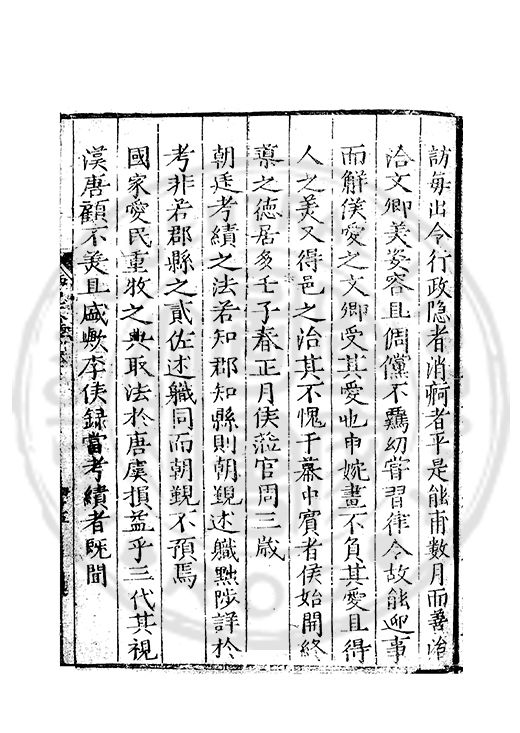 訪每出令行政隐者消痾者平是能甫數月而善治
洽文卿美姿容且倜儻不羈幼嘗習律令故能迎事
而觧侯愛之文卿受其愛也申婉畫不負其愛且得
人之美又得邑之治其不愧于幕中賓者侯始開終
稾之德居多壬子春正月侯蒞官周三歲
朝廷考績之法若知郡知縣則朝覲述軄黜陟詳於
考非若郡縣之貳佐述軄同而朝覲不預焉
國家愛民重牧之典取法於唐虞損益乎三代其視
漢唐顧不羙且盛歟李侯録當考績者既聞